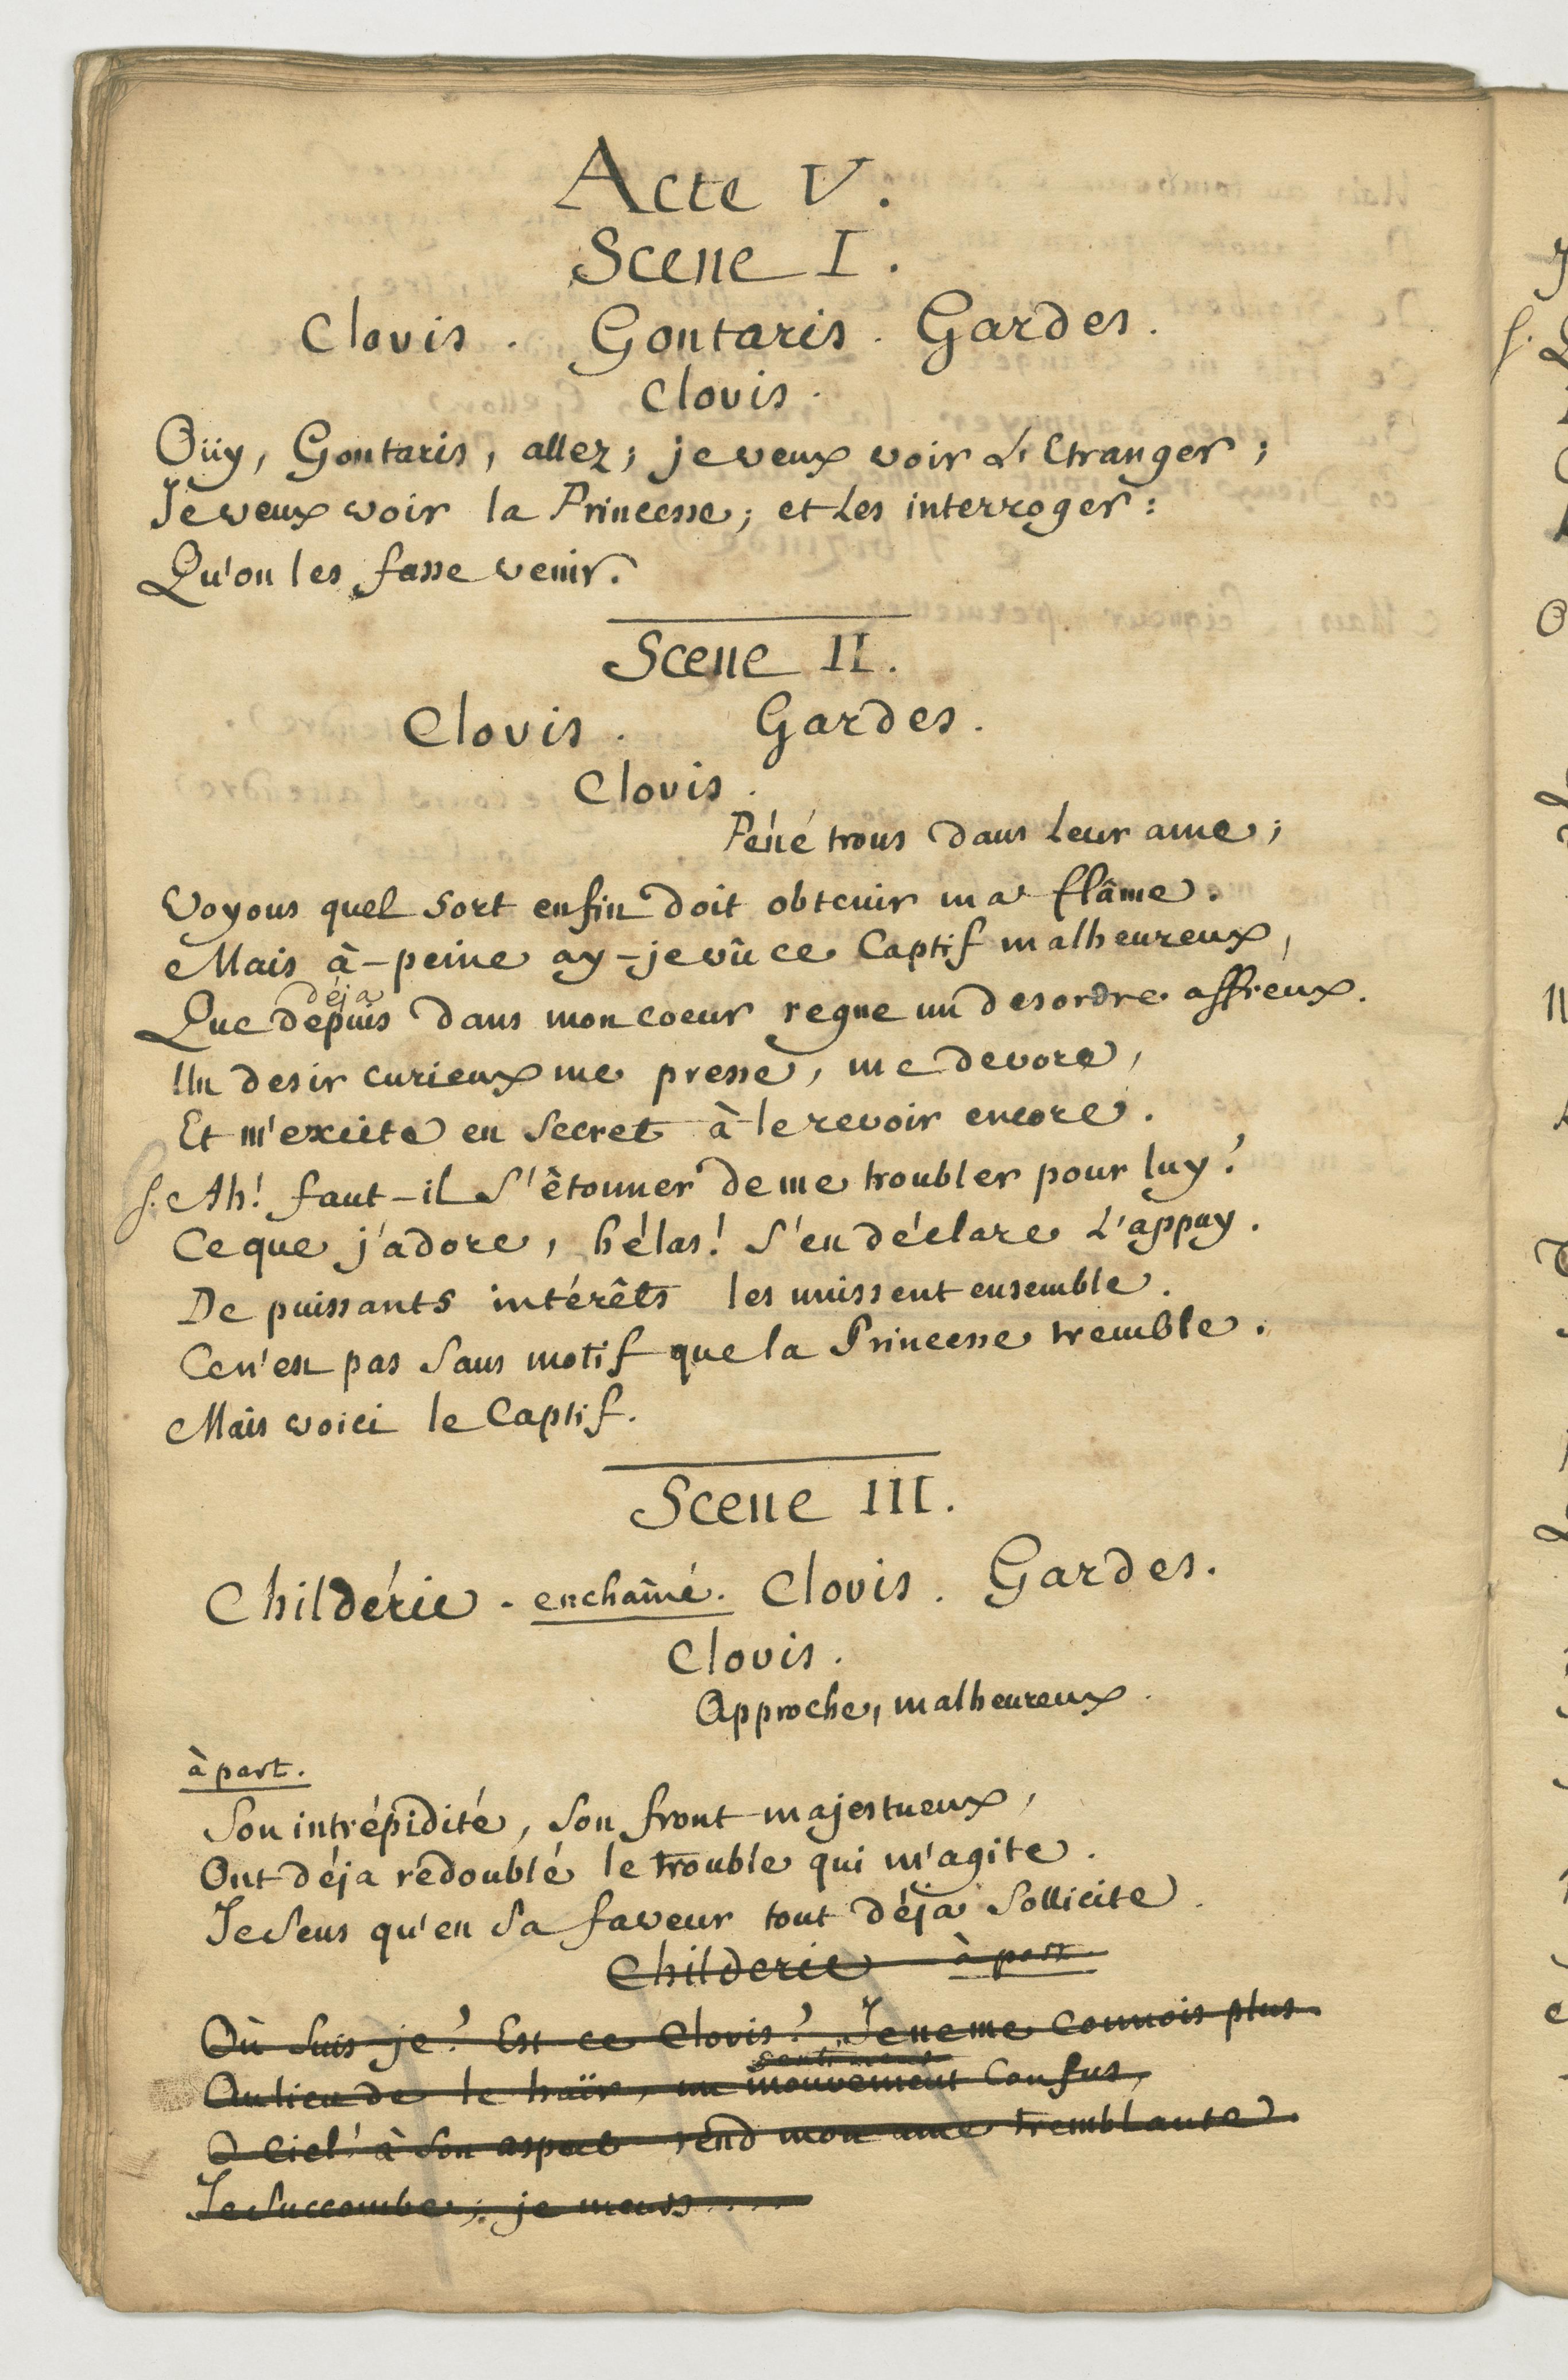 Acte V.
Scene I.
Clovis. Gontaris. Gardes.
Clovis.
Oüy, Gontaris, allez; je veux voir L'Etranger;
Je veux voir la Princesse; et Les interroger:
Qu'on les fasse venir.
Scene II.
Clovis. Gardes.
Clovis.
Pénétrons dans Leur ame;
Voyons quel sort enfin doit obtenir ma flâme.
Mais à-peine ay-je vû ce Captif malheureux,
déja
Que depuis dans mon coeur regne un desordre affreux.
Un desir curieux me presse, me devore,
Et m'excite en secret à le revoir encore.
f. Ah! faut-il s'êtonner de me troubler pour luy?
Ce que j'adore, hélas! s'en déclare L'appuy.
De puissants intérêts les unissent ensemble.
Ce n'est pas sans motif que la Princesse tremble.
Mais voici le Captif.
Scene III.
Childéric. enchaîné. Clovis. Gardes.
Clovis.
Approche, malheureux.
à part.
Son intrépidité, son front majestueux,
Ont déja rédoublé le trouble qui m'agite.
Je sens qu'en sa faveur tout déja sollicite.
Childeric à part
Où suis je? Est ce Clovis? Je ne me connois plus
sentiment
Au lieu de le haïr, un mouvement confus,
O Ciel! à son aspect rend mon ame tremblante.
Je succombe; je meurs....